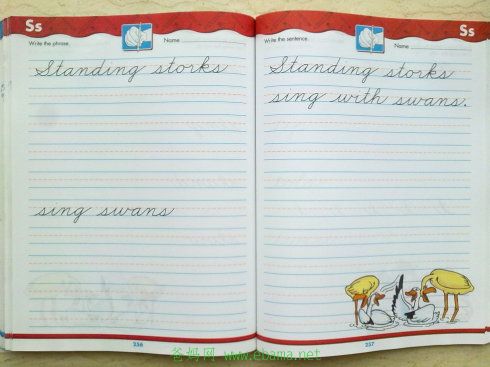 Ss
Write the phrase.
Name
Standing storks
sing swans
256
Ss
Write the sentence.
Name
Standing storks
sing with swans.
257
爸妈网 www.ebama.net